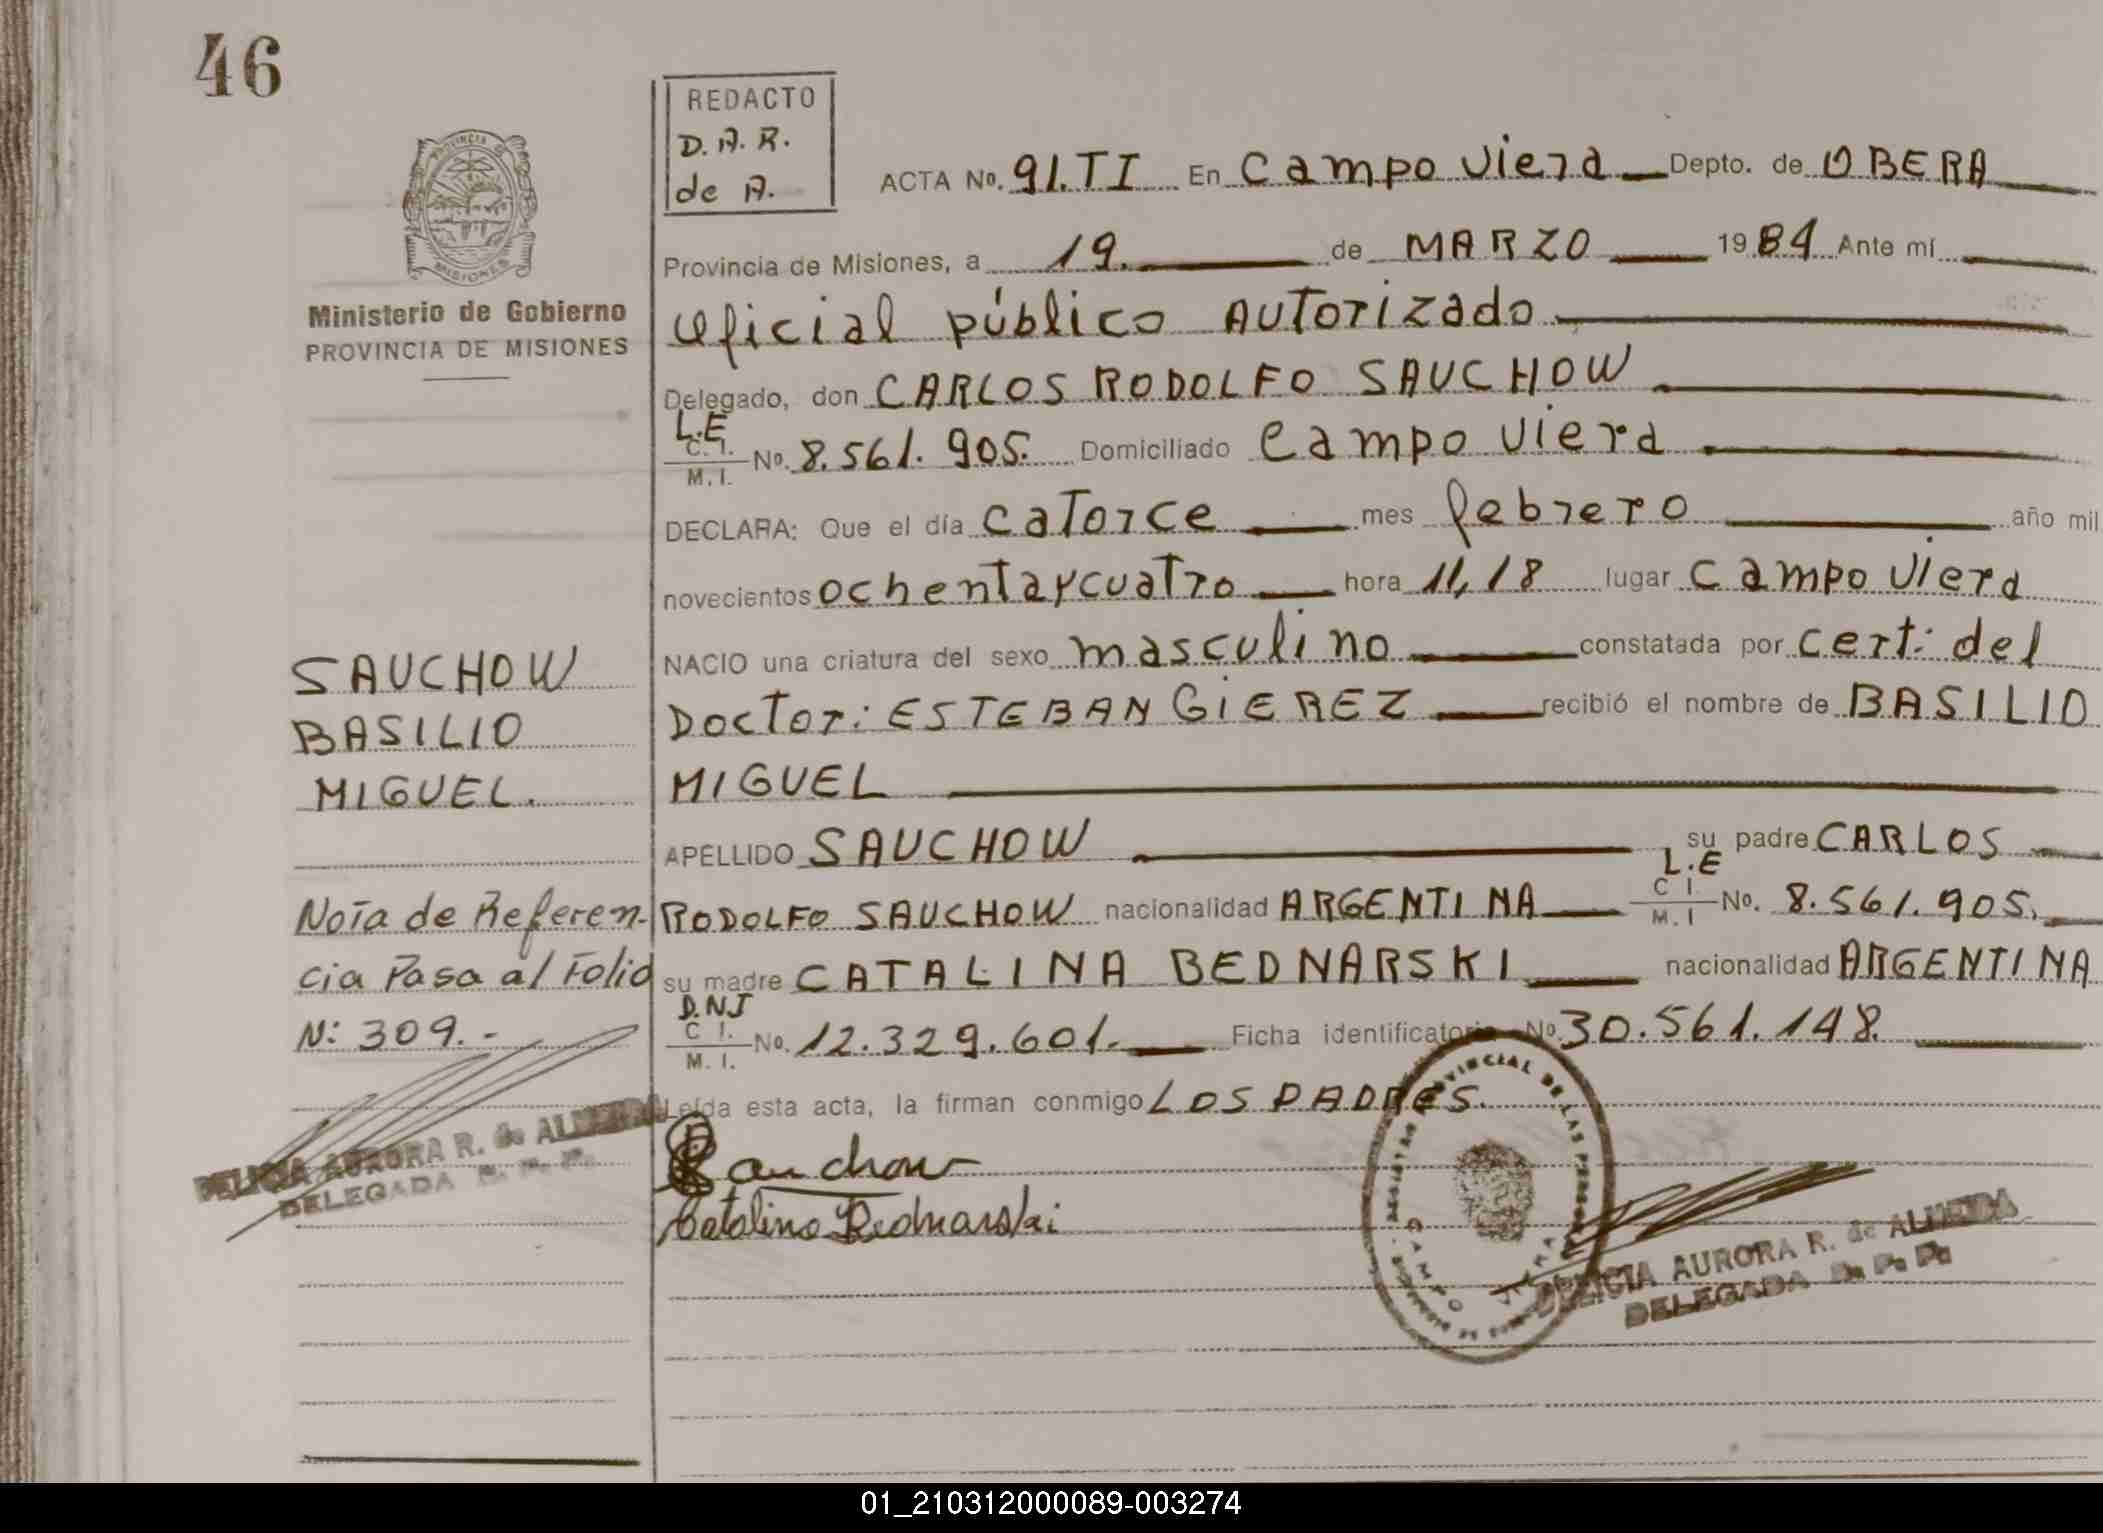 46
REDACTO
D.A.R.
de A.
PROVINCIA DE
MISIONES
Ministerio de Gobierno
PROVINCIA DE MISIONES
ACTA No. 91.TI En Campo Viera Depto. de OBERA
Provincia de Misiones, a 19. de MARZO 1984 Ante mí
Oficial público AUTorizado
Delegado, don CARLOS RODOLFO SAUCHOW
L.E
C. I.
M. I. No. 8.561.905. Domiciliado Campo Viera
DECLARA: Que el día catorce mes febrero año mil
novecientos ochentaycuatro hora 11,18 lugar Campo Viera
NACIO una criatura del sexo masculino constatada por cert: del
Doctor: ESTEBAN GIEREZ recibió el nombre de BASILIO
MIGUEL
APELLIDO SAUCHOW su padre CARLOS
L.E
RODOLFO SAUCHOW nacionalidad ARGENTINA C I. M. I No. 8.561.905.
su madre CATALINA BEDNARSKI nacionalidad ARGENTINA
D.NI
C I.
M. I. No. 12.329.601. Ficha identificatoria No 30.561.148.
Leída esta acta, la firman conmigo LOS PADRES.
Sauchow
Catalina Bednarski
SAUCHOW
BASILIO
MIGUEL.
Nota de Referen-
cia Pasa al Folio
N: 309.-
DELICIA AURORA R. de ALMEIDA
DELEGADA R. P. P.
REGISTRO PROVINCIAL DE LAS PERSONAS
CAMPO VIERA
DELICIA AURORA R. de ALMEIDA
DELEGADA R. P. P.
01_210312000089-003274